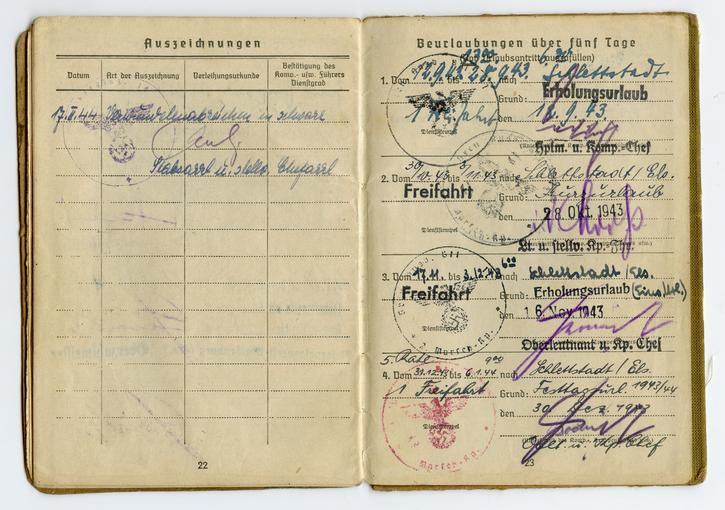 Auszeichnungen
Datum
Art der Auszeichnung
Verleihungsurkunde
Bestätigung des Komp.- usw. Führers Dienstgrad
17.II.44 Verwundetenabzeichen in schwarz
Stabsarzt u. stellv. Chefarzt
22
Beurlaubungen über fünf Tage
1. Vom bis 28.9.43 nach Schlettstadt
Grund: Erholungsurlaub
Dienststempel
den 10.9.43
Hptm. u. Komp.-Chef
2. Vom 30/10.43 bis 9/11.43 nach Schlettstadt/Els.
Freifahrt
Grund: Kurzurlaub
den 28. Okt. 1943
Dienststempel
Lt. u. stellv. Kp.-Fhr.
3. Vom 17.11. bis 3.12.43 nach Schlettstadt/Els.
Freifahrt
Grund: Erholungsurlaub
den 16. Nov. 1943
Dienststempel
2. Marsch-Kp.
Oberleutnant u. Kp. Chef
5. Rate
4. Vom 31.12.43 bis 6.1.44 nach Schlettstadt/Els.
1 Freifahrt
Grund: Festtagsurl. 1943/44
den 30. Dez. 1943
Dienststempel
Marsch-Kp.
Oblt. u. Kp. Chef
23